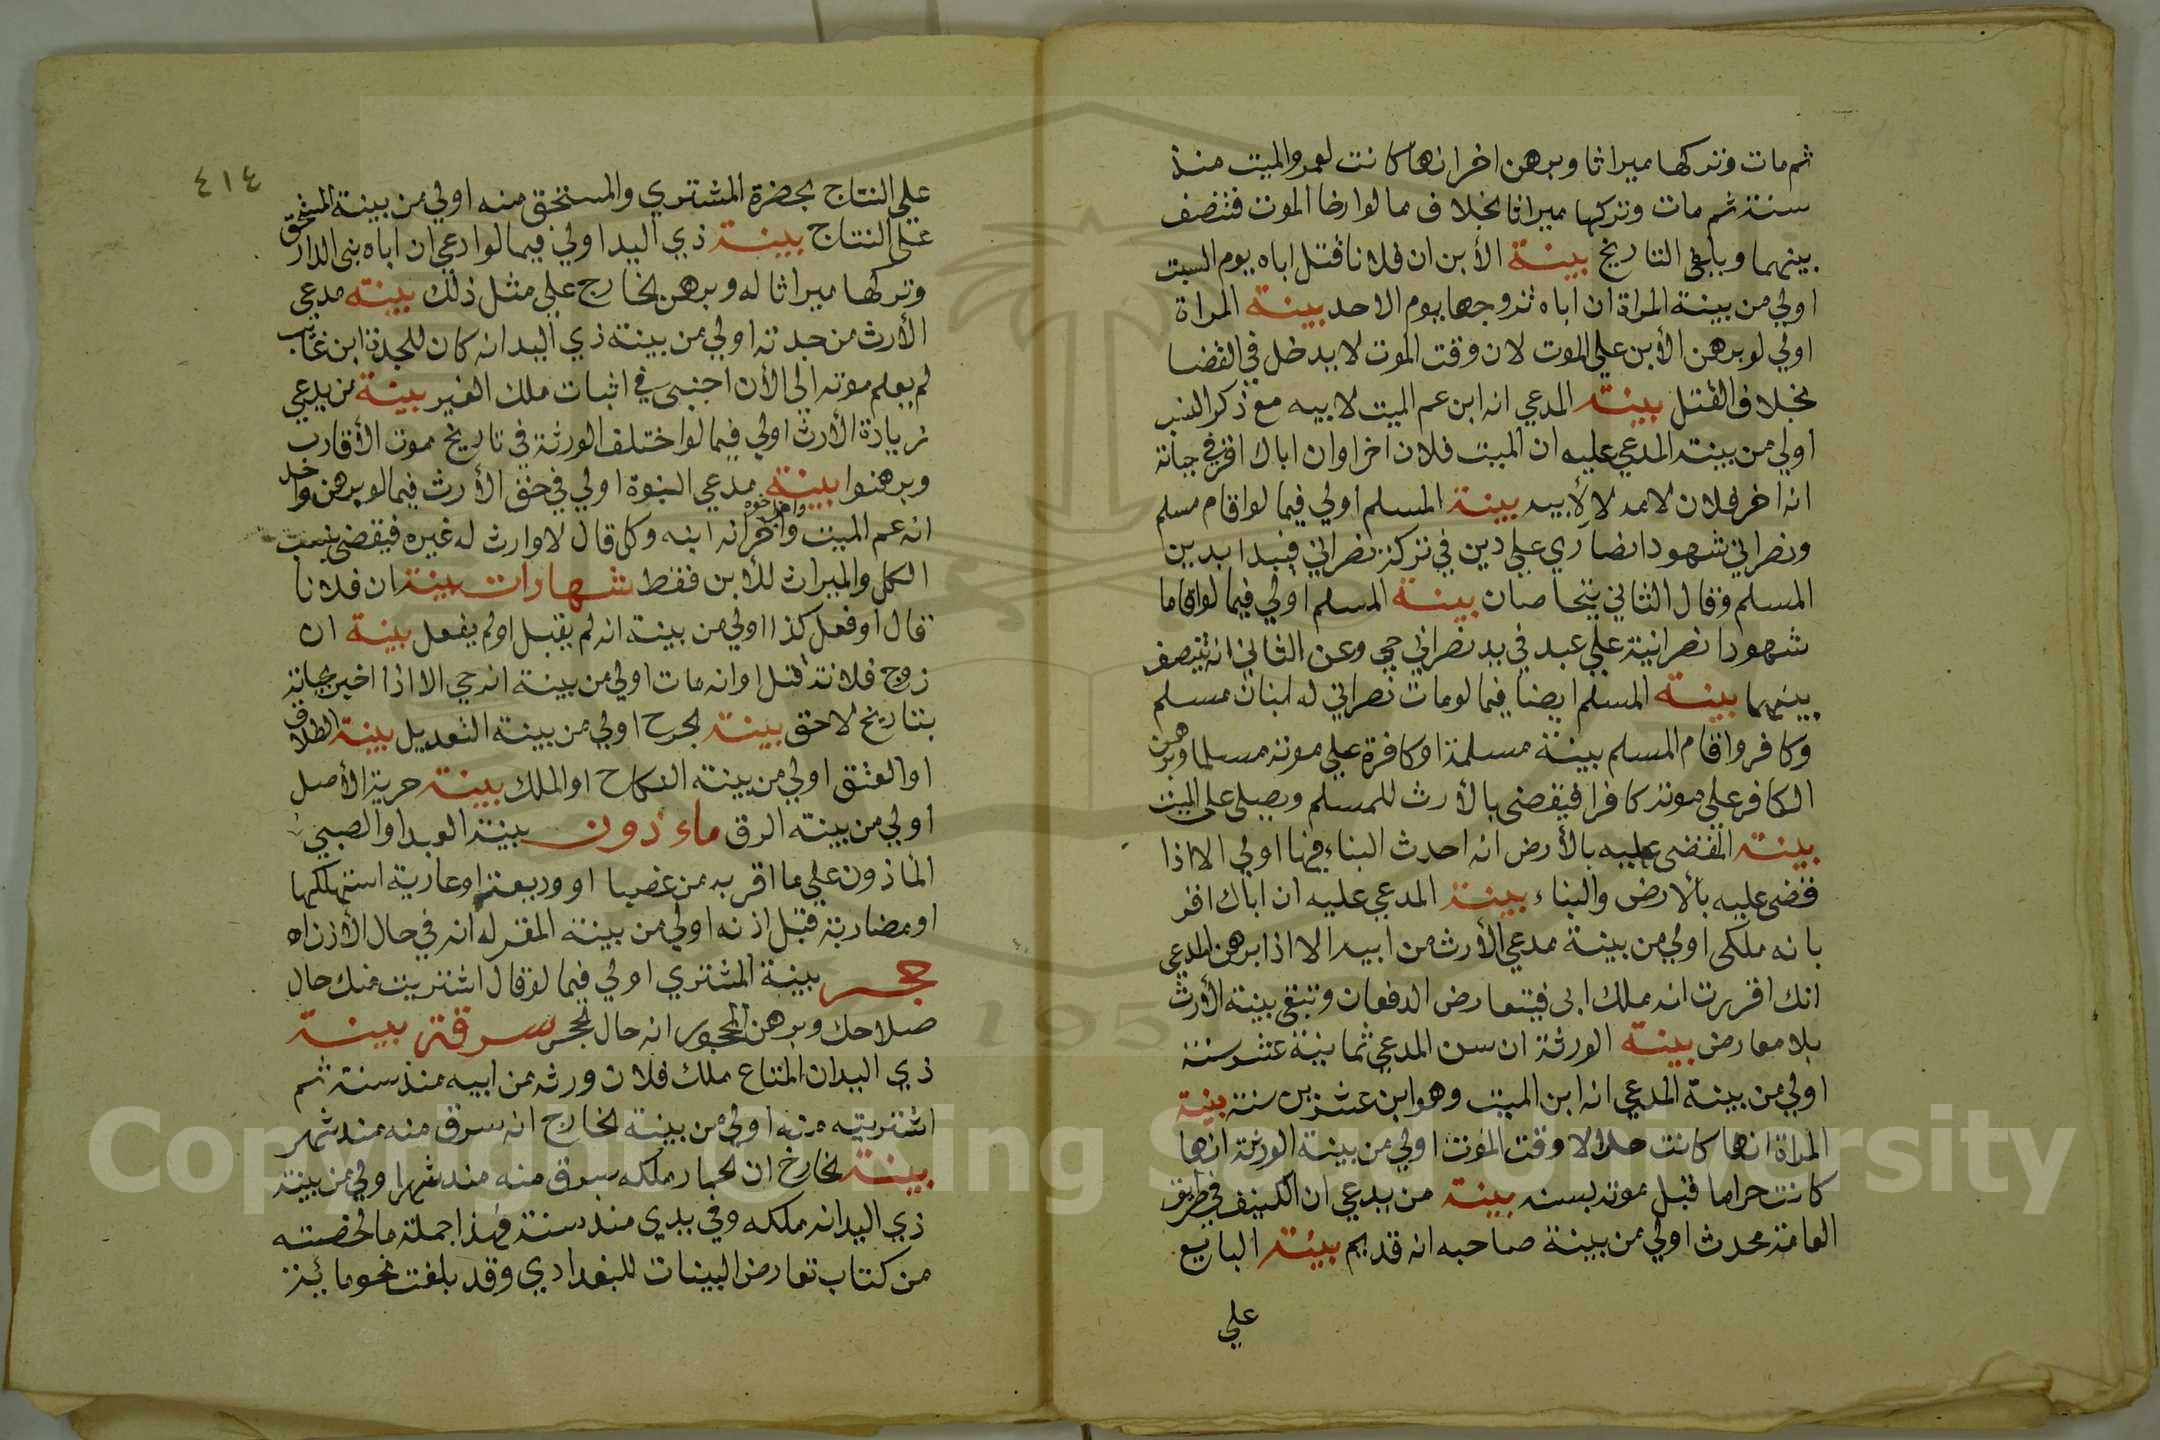 ثم مات وتركها ميراثا وبرهن اخر انها كانت لعمرو الميت منذ
سنة ثم مات وتركها ميراثا بخلاف ما لو ارخا الموت فتنصف
بينهما ويلغى التاريخ بينة الأبن ان فلانا قتل اباه يوم السبت
اولي من بينة المراة ان اباه تزوجها يوم الاحد بينة المراة
اولي لو برهن الأبن علي الموت لان وقت الموت لا يدخل في القضا
بخلاف القتل بينة المدعي انه ابن عم الميت لابيه مع ذكر النسب
اولي من بينة المدعي عليه ان الميت فلان اخر او ان اباك اقر في حياته
انه اخو فلان لامه لا لأبيه بينة المسلم اولي فيما لو اقام مسلم
ونصراني شهودا نصاري علي دين في تركة نصراني فيبدا بدين
المسلم وقال الثاني يتحاصان بينة المسلم اولي فيما لو اقاما
شهودا نصرانية علي عبد في يد نصراني حي وعن الثاني انه يتنصف
بينهما بينة المسلم ايضا فيما لو مات نصراني له ابنان مسلم
وكافر واقام المسلم بينة مسلمة او كافرة علي موته مسلما وبرهن
الكافر علي موته كافرا فيقضى بالأرث للمسلم ويصلى على الميت
بينة المقضى عليه بالأرض انه احدث البناء فيها اولي الا اذا
قضى عليه بالأرض والبناء بينة المدعي عليه ان اباك اقر
بانه ملكى اولي من بينة مدعي الأرث من ابيه الا اذا برهن المدعي
انك اقررت انه ملك ابى فيتعارض الدفعان وتبقى بينة الأرث
بلا معارض بينة الورثة ان سن المدعي ثمانية عشر سنة
اولي من بينة المدعي انه ابن الميت وهو ابن عشرين سنة بينة
المراة انها كانت حلالا وقت الموت اولي من بينة الورثة انها
كانت حراما قبل موته بسنه بينة من يدعي ان الكنيف في طريق
العامة محدث اولي من بينة صاحبه انه قديم بينة البايع
علي
٤١٤
علي النتاج بحضرة المشتري والمستحق منه اولي من بينة المستحق
على النتاج بينة ذي اليد اولي فيما لو ادعي ان اباه بنى الدار
وتركها ميراثا له وبرهن الخارج علي مثل ذلك بينة مدعي
الأرث من جدته اولي من بينة ذي اليد انه كان للجدة ابن غائب
لم يعلم موته الى الأن اجنبى في اثبات ملك الغير بينة من يدعي
زيادة الأرث اولي فيما لو اختلف الورثة في تاريخ موت الأقارب
وبرهنوا بينة مدعي البنوة اولي في حق الأرث فيما لو برهن واحد
انه عم الميت واخر اخوه واخر انه ابنه وكل قال لا وارث له غيره فيقضى بنسب
الكل والميراث للأبن فقط شهادات بينة ان فلانا
قال او فعل كذا اولي من بينة انه لم يقبل او لم يفعل بينة ان
زوج فلانة قتل او انه مات اولي من بينة انه حي الا اذا اخبر بحياته
بتاريخ لاحق بينة الجرح اولي من بينة التعديل بينة الطلاق
او العتق اولي من بينة النكاح او الملك بينة حرية الأصل
اولي من بينة الرق ماءذون بينة العبد او الصبي
الماذون علي ما اقر به من غصبا او وديعة او عارية استهلكها
او مضاربة قبل اذنه اولي من بينة المقر له انه في حال الأذن اه
حجر بينة المشتري اولي فيما لو قال اشتريت منك حال
صلاحك وبرهن المحجور انه حال الحجر سرقة بينة
ذي اليد ان المتاع ملك فلان ورثه من ابيه منذ سنة ثم
اشتريته منه اولي من بينة الخارج انه سرق منه منذ شهر
بينة الخارج ان الحمار ملكه سرق منه منذ شهر اولي من بينة
ذي اليد انه ملكه وفي يدي منذ سنة وهذا جملة ما لخصته
من كتاب تعارض البينات للبغدادي وقد بلغت نحو مائة
Copyright © King Saud University
195